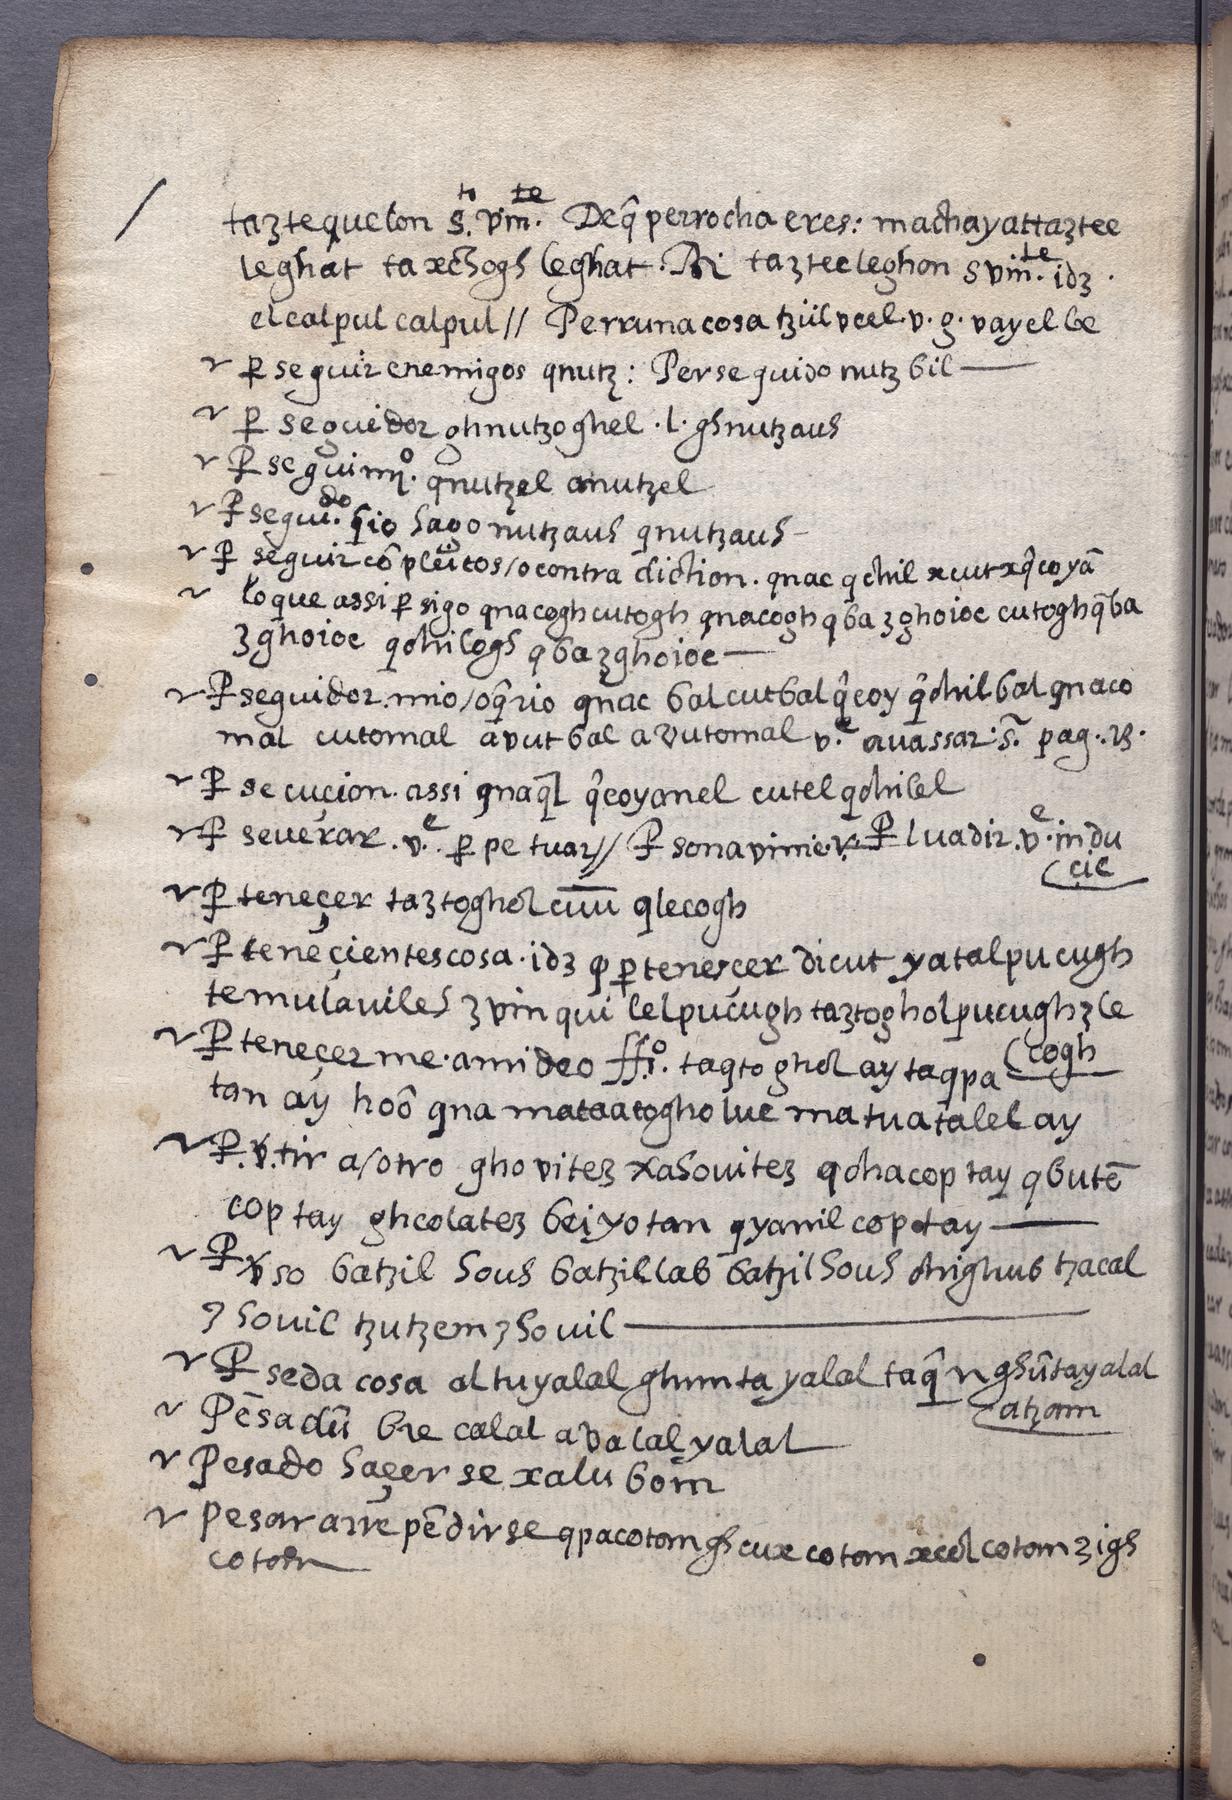 taztequelon S.to vin.te Deq̂ perrocha eres: machayattaztee
leghat taxchogh leghat. Ri taztecleghon S vin.te idz.
elcalpul calpul // Perruna cosa tziil vcel. v. g. vayel be
ꝑ seguir enemigos qnutz: Perseguido nutzbil —
ꝑ seguidor ghnutzoghel .l. ghnutzauh
ꝑ seguimi.o qnutzel anutzel
ꝑ segui.do q̂io hago nutzauh qnutzauh –
ꝑ seguir cô pleitos / o contra diction. qnac qchil xcutxq̂coyā
lo que assi ꝑ sigo qnacogh cutogh qnacogh qba zghoioc cutogh q̄ba
zghoioc qchilogh qba zghoioc —
ꝑ seguidor. mio / oq̂rio qnac bal cutbal q̂coy q̂chilbal qnaco
mal cutomal avutbal avutomal v.e auassar. S. pag. 13.
ꝑ secucion. assi qnaq̄l q̂coyanel cutel qchilel
ꝑ seuerar. v.e ꝑpetuar // ꝑ sona vinic. ꝑ luadir. v.e indu
cie
ꝑ teneçer taztoghol cuū qlecogh
ꝑ teneçientes cosa. idz qꝑtenesçer dicut yatalpucugh
temulauiles z vinqui lelpucugh taztogholpucugh z le
cogh
ꝑ teneçer me. a mideo ffi.o taqtoghol ay taqpa
tan ay hoô qna mataatogholue matuatalel ay
ꝑ.v.tir a / otro ghovitez xahovitez qchacoptay qbutē
coptay ghcolatez beiyotan qyanil coptay —
ꝑ vso batzil houh batzillab batzilhouh chighub tzacal
z houil tzutzem z houil —
ꝑ seda cosa altuyalal ghunta yalal taq̂n ghûtayalal
atzam
Pēsadû bre calal avalal yalal
Pesado haçer se xalubom
Pesar arrepēdirse qpacotan gh cux cotom xcol cotom zigh
cotom